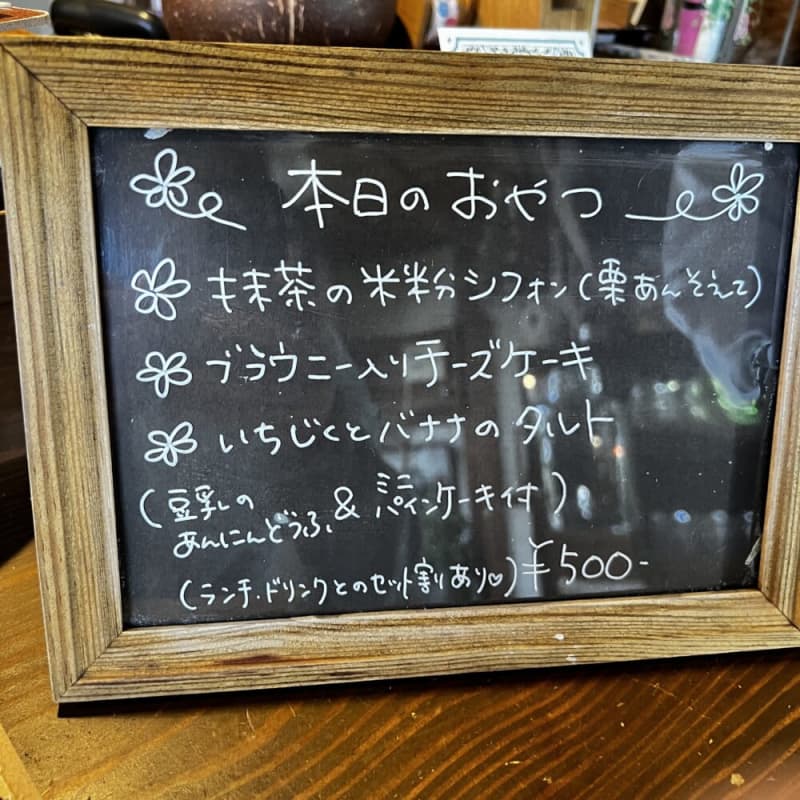 本日のおやつ
抹茶の米粉シフォン(栗あんそえて)
ブラウニー入りチーズケーキ
いちじくとバナナのタルト
(豆乳のあんにんどうふ & ミニパインケーキ付)
(ランチ・ドリンクとのセット割りあり♡) ¥500-